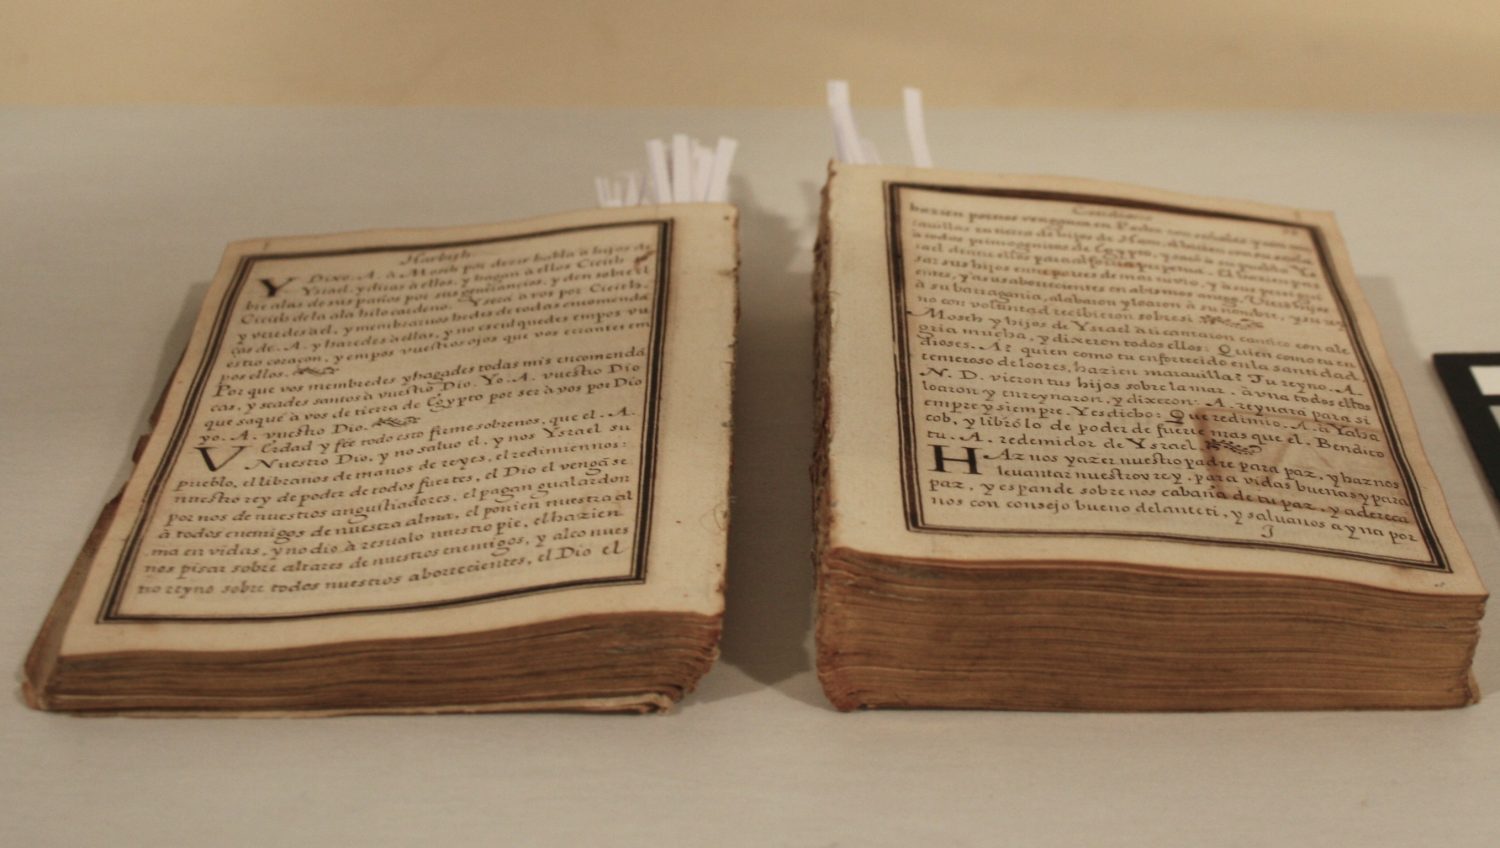 Harbish
Y Dixo. A. à Moseh por dezir habla à hijos de
Ysrael. y diras à ellos, y hagan à ellos Cicith
bre alas de sus paños por sus generancios, y den sobre el
Cicith de la ala hilo cardeno. Y sera à vos por Cicith.
y veredes àel, y membrarvos hedes de todas encomenda
ças de. A. y haredes àellas, y no esculquedes empos vu
estro coraçon, y empos vuestros ojos que vos errantes em
pos ellos.
Por que vos membredes y hagades todas mis encomendá
ças, y seades santos à vuestro Dio. Yo. A. vuestro Dio
que saquè à vos de tierra de Egypto por ser à vos por Dio
yo. A. vuestro Dio.
VErdad y fée todo esto firme sobrenos, que el. A.
Nuestro Dio, y no saluo el, y nos Ysrael su
pueblo, el libranos de manos de reyes, el redimiennos:
nuestro rey de poder de todos fuertes, el Dio el vengáse
por nos de nuestros angustiadores, el pagan gualardon
à todos enemigos de nuestra alma, el ponien nuestra al
ma en vidas, y no dio à resualo nuestro pie, el hazien
nos pisar sobre altares de nuestros enemigos, y alco nues
tro reyno sobre todos nuestros aborrecientes, el Dio el
hazien por nos vengança en Parho con señales y con
rauillas en tierra de hijos de Ham. à
à todos primogenitos de Egypto, y sacò à su pueblo Ys
rael dentre ellos para alforria perpetua. El hazien pas
sar sus hijos entre partes de mar ruvio, y à sus persegui
entes, y à sus aborrecientes en abismos Vieron hijos
à su barragania, alabaron y loaron à su nombre, y su rey
no con voluntad recibieron sobre si.
Moseh y hijos de Ysrael à ti cantaron cantico con ale
gria mucha, y dixeron todos ellos: Quien como tu en
dioses. A? quien como tu enfortecido en la santidad,
temeroso de loores, hazien marauilla? Tu reyno. A.
N. D. vieron tus hijos sobre la mar. à vna todos ellos
loaron y enreynaron, y dixeron: A. reynarà para si
empre y siempre. Y es dicho: Que redimio. A. à Yaha
cob, y librólo de poder de fuerte mas que el. Bendito
tu. A. redemidor de Ysrael.
HAz nos yazer nuestro padre para paz, y haz nos
levantar nuestro rey. para vidas buenas y para
paz, y espande sobre nos cabaña de tu paz, y adereça
nos con consejo bueno delante ti, y saluanos ayna por